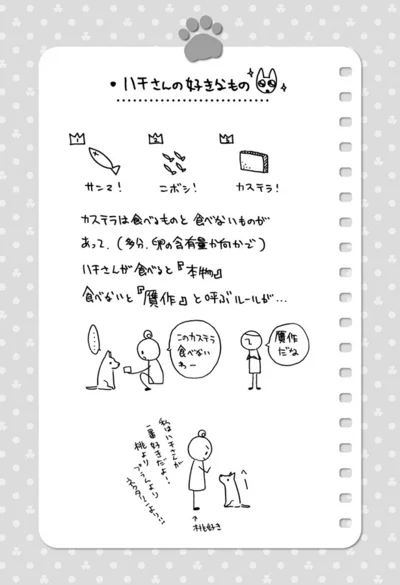 ・ハチさんの好きなもの
1
2
3
サンマ!
ニボシ!
カステラ!
カステラは食べるものと食べないものが
あって、(多分、卵の含有量か何かで)
ハチさんが食べると『本物』
食べないと『贋作』と呼ぶルールが…
……
このカステラ
食べない
わー
贋作
だね
私はハチさんが
一番好きだよ!
桃よりプラムより
ネクタリンより!!
↑
桃好き